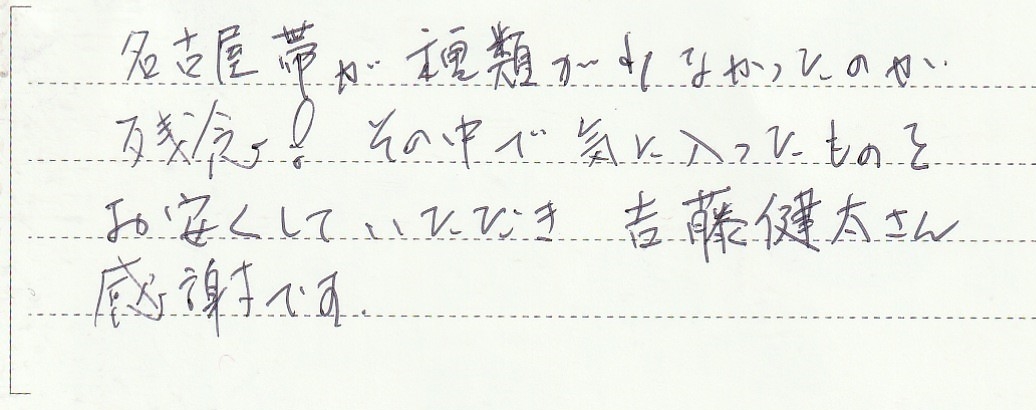 名古屋帯が種類が少なかったのが
残念!その中で気に入ったものを
お安くしていただき 吉藤健太さん
感謝です.